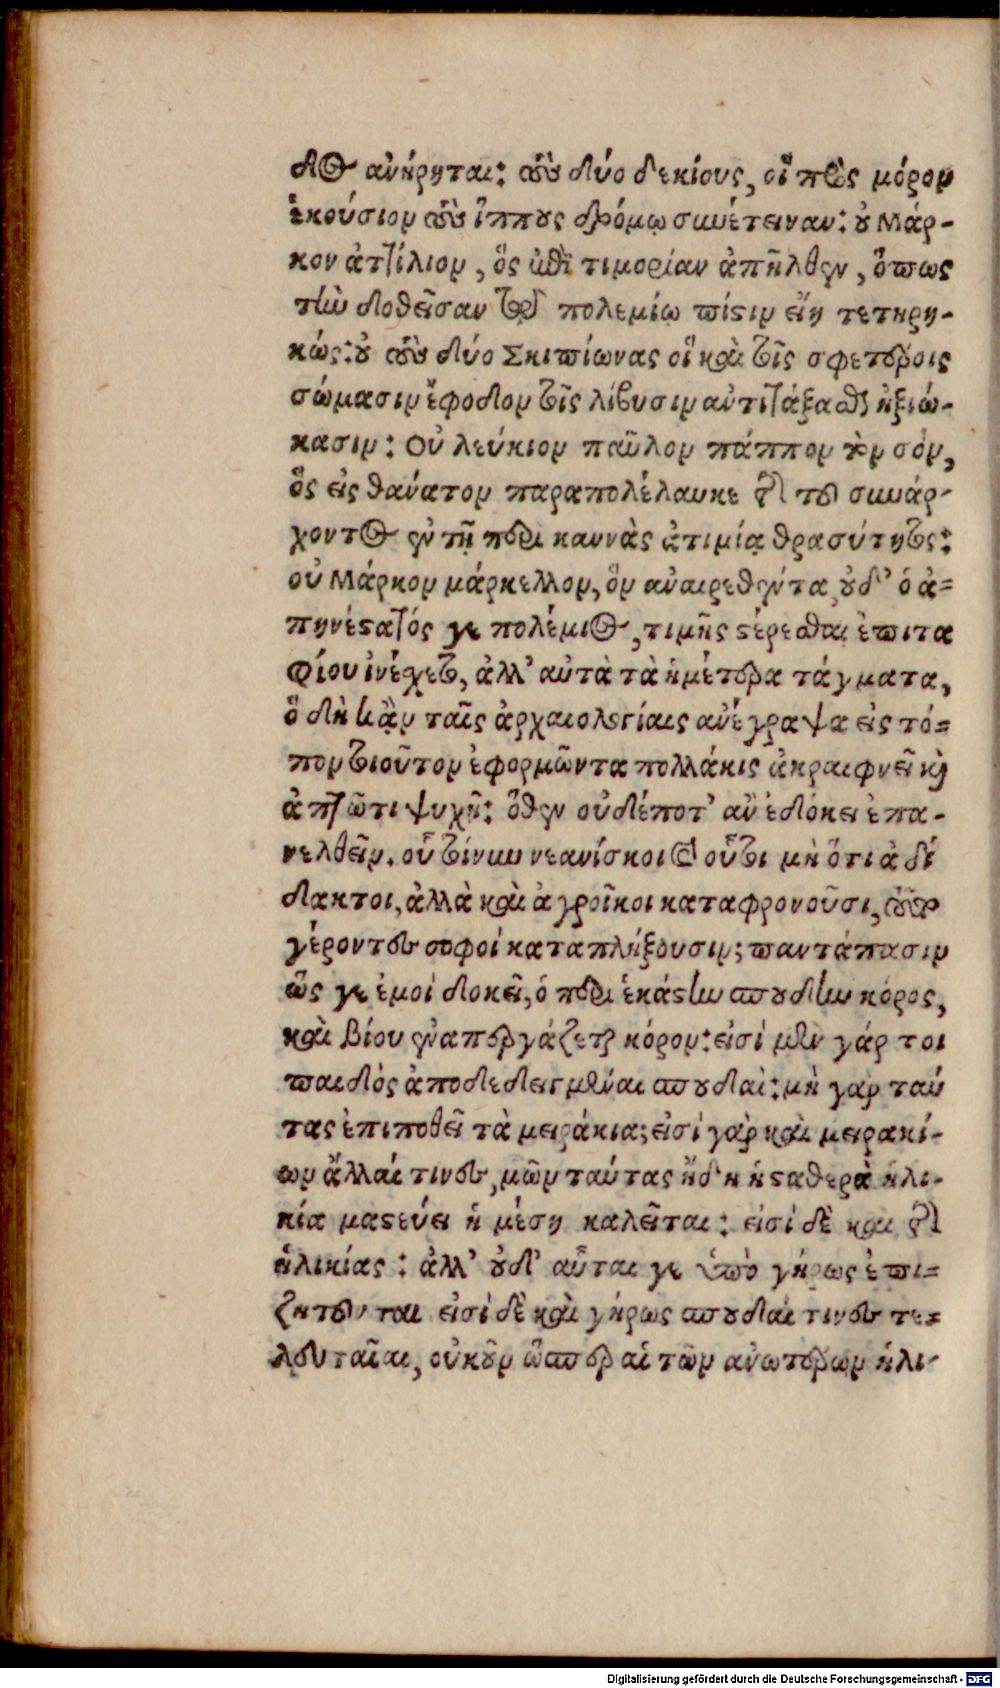 δος ἀνήρηται: οὐ δύο δεκίους, οἳ πρὸς μόρον
ἑκούσιον τοὺς ἵππους δρόμῳ συνέτειναν: οὐ Μάρ-
κον ἀτίλιον, ὃς ἐπὶ τιμορίαν ἀπῆλθεν, ὅπως
τὴν δοθεῖσαν τῷ πολεμίῳ πίστιν εἴη τετηρη-
κώς: οὐ τοὺς δύο Σκιπίωνας οἳ καὶ τοῖς σφετέροις
σώμασιν ἔφοδον τοῖς λίβυσιν ἀντιτάξασθαι ἠξιώ-
κασιν: Οὐ λεύκιον παῦλον πάππον τὸν σόν,
ὃς εἰς θάνατον παραπολέλαυκε τῆς τοῦ συνάρ-
χοντος ἐν τῇ περὶ καννὰς ἀτιμίᾳ θρασύτητος:
οὐ Μάρκον μάρκελλον, ὃν ἀναιρεθέντα οὐδ' ὁ ἀ=
πηνέστατός γε πολέμιος, τιμῆς στέρεσθαι ἐπιτα
φίου ἠνέχετο, ἀλλ' αὐτὰ τὰ ἡμέτερα τάγματα,
ὃ δὴ κἀν ταῖς ἀρχαιολογίαις ἀνέγραψα εἰς τό=
πον τοιοῦτον ἐφορμῶντα πολλάκις ἀκραιφνεῖ καὶ
ἀπτῶτι ψυχῇ: ὅθεν οὐδέποτ' ἂν ἐδόκει ἐπα-
νελθεῖν. οὗ τοίνυν νεανίσκοι καὶ οὗτοι μὴ ὅτι ἀδί
δακτοι, ἀλλὰ καὶ ἀγροῖκοι καταφρονοῦσι, τοῦτο
γέροντες σοφοὶ καταπλήξουσιν; παντάπασιν
ὥς γε ἐμοὶ δοκεῖ, ὁ περὶ ἑκάστην σπουδὴν κόρος,
καὶ βίου ἐναπεργάζεται κόρον: εἰσὶ μὲν γάρ τοι
παιδὸς ἀποδεδειγμέναι σπουδαὶ: μὴ γὰρ ταύ
τας ἐπιποθεῖ τὰ μειράκια; εἰσὶ γὰρ καὶ μειρακί-
ων ἄλλαι τινες, μῶν ταύτας ἤδη ἡ σταθερὰ ἡλι-
κία μαστεύει ἡ μέση καλεῖται: εἰσὶ δὲ καὶ τῆς
ἡλικίας: ἀλλ' οὐδ' αὗταί γε ὑπὸ γήρως ἐπι=
ζητοῦνται εἰσὶ δὲ καὶ γήρως σπουδαί τινες τε=
λευταῖαι, οὐκοῦν ὥσπερ αἱ τῶν ἀνωτέρων ἡλι-
Digitalisierung gefördert durch die Deutsche Forschungsgemeinschaft - DFG